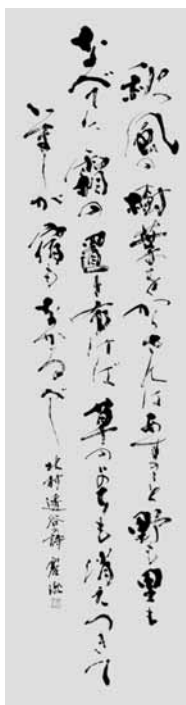 秋風の樹葉をからさんはあすのこと野も里も
なべてに霜の置き布けば草のも消えつきて
いましが宿もなかるべし 北村透谷詩